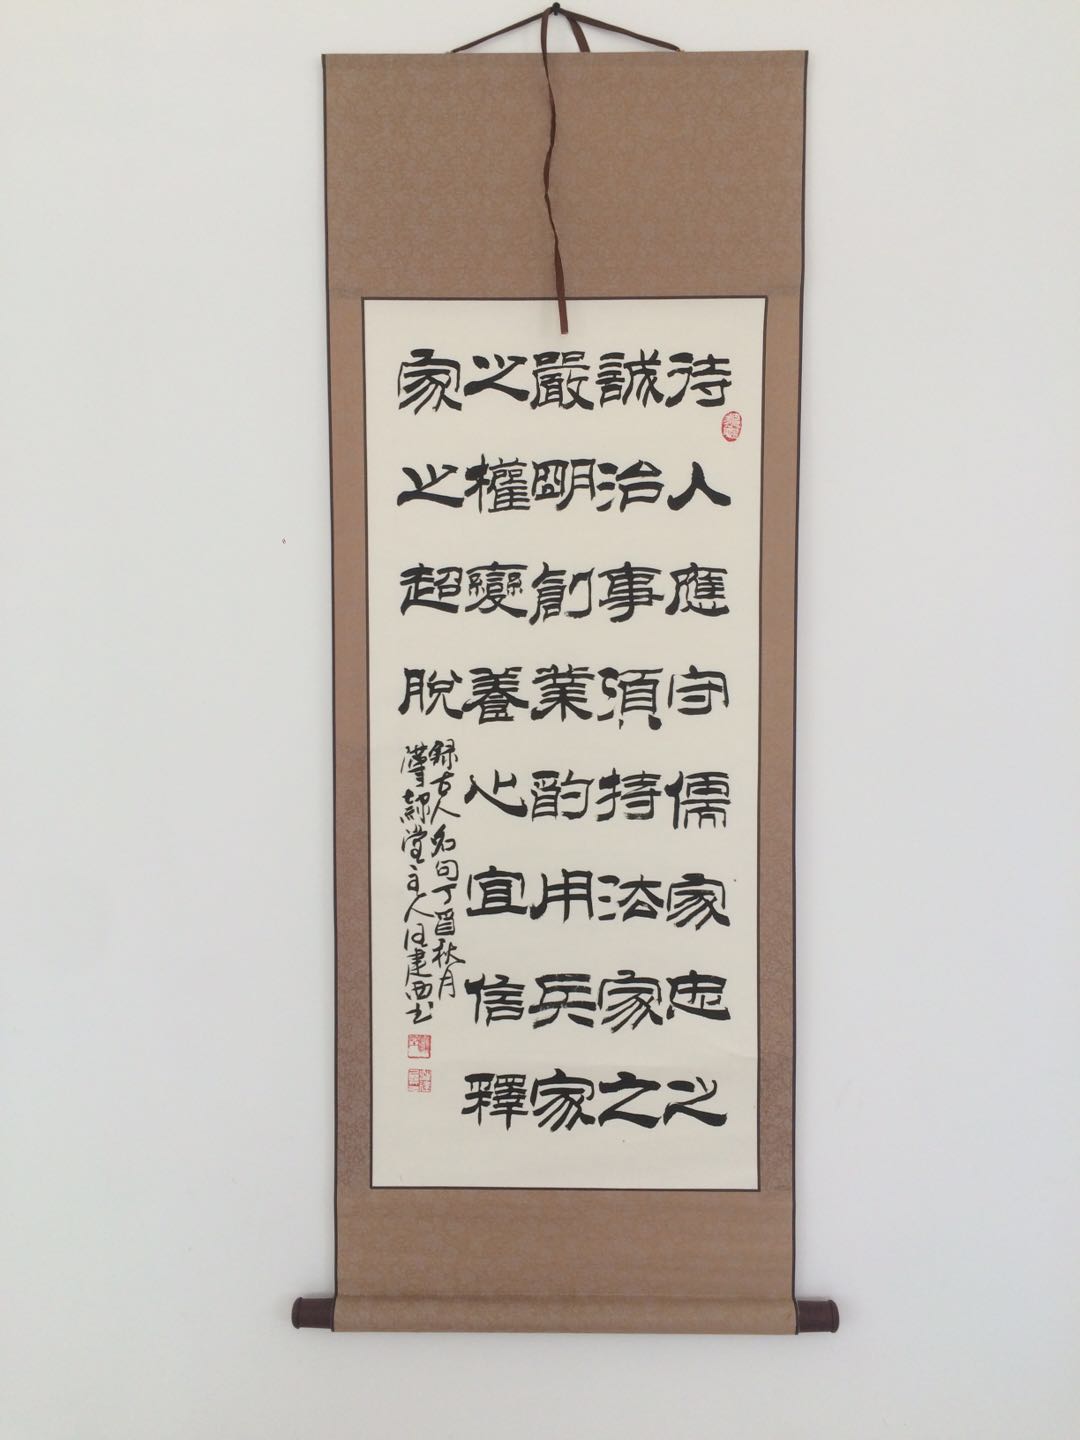 待人應守儒家忠之
誠治事須持法家之
嚴明創業酌用兵家
之權變養心宜信釋
家之超脫
録古人名句丁酉秋月
堂主人汪建西书